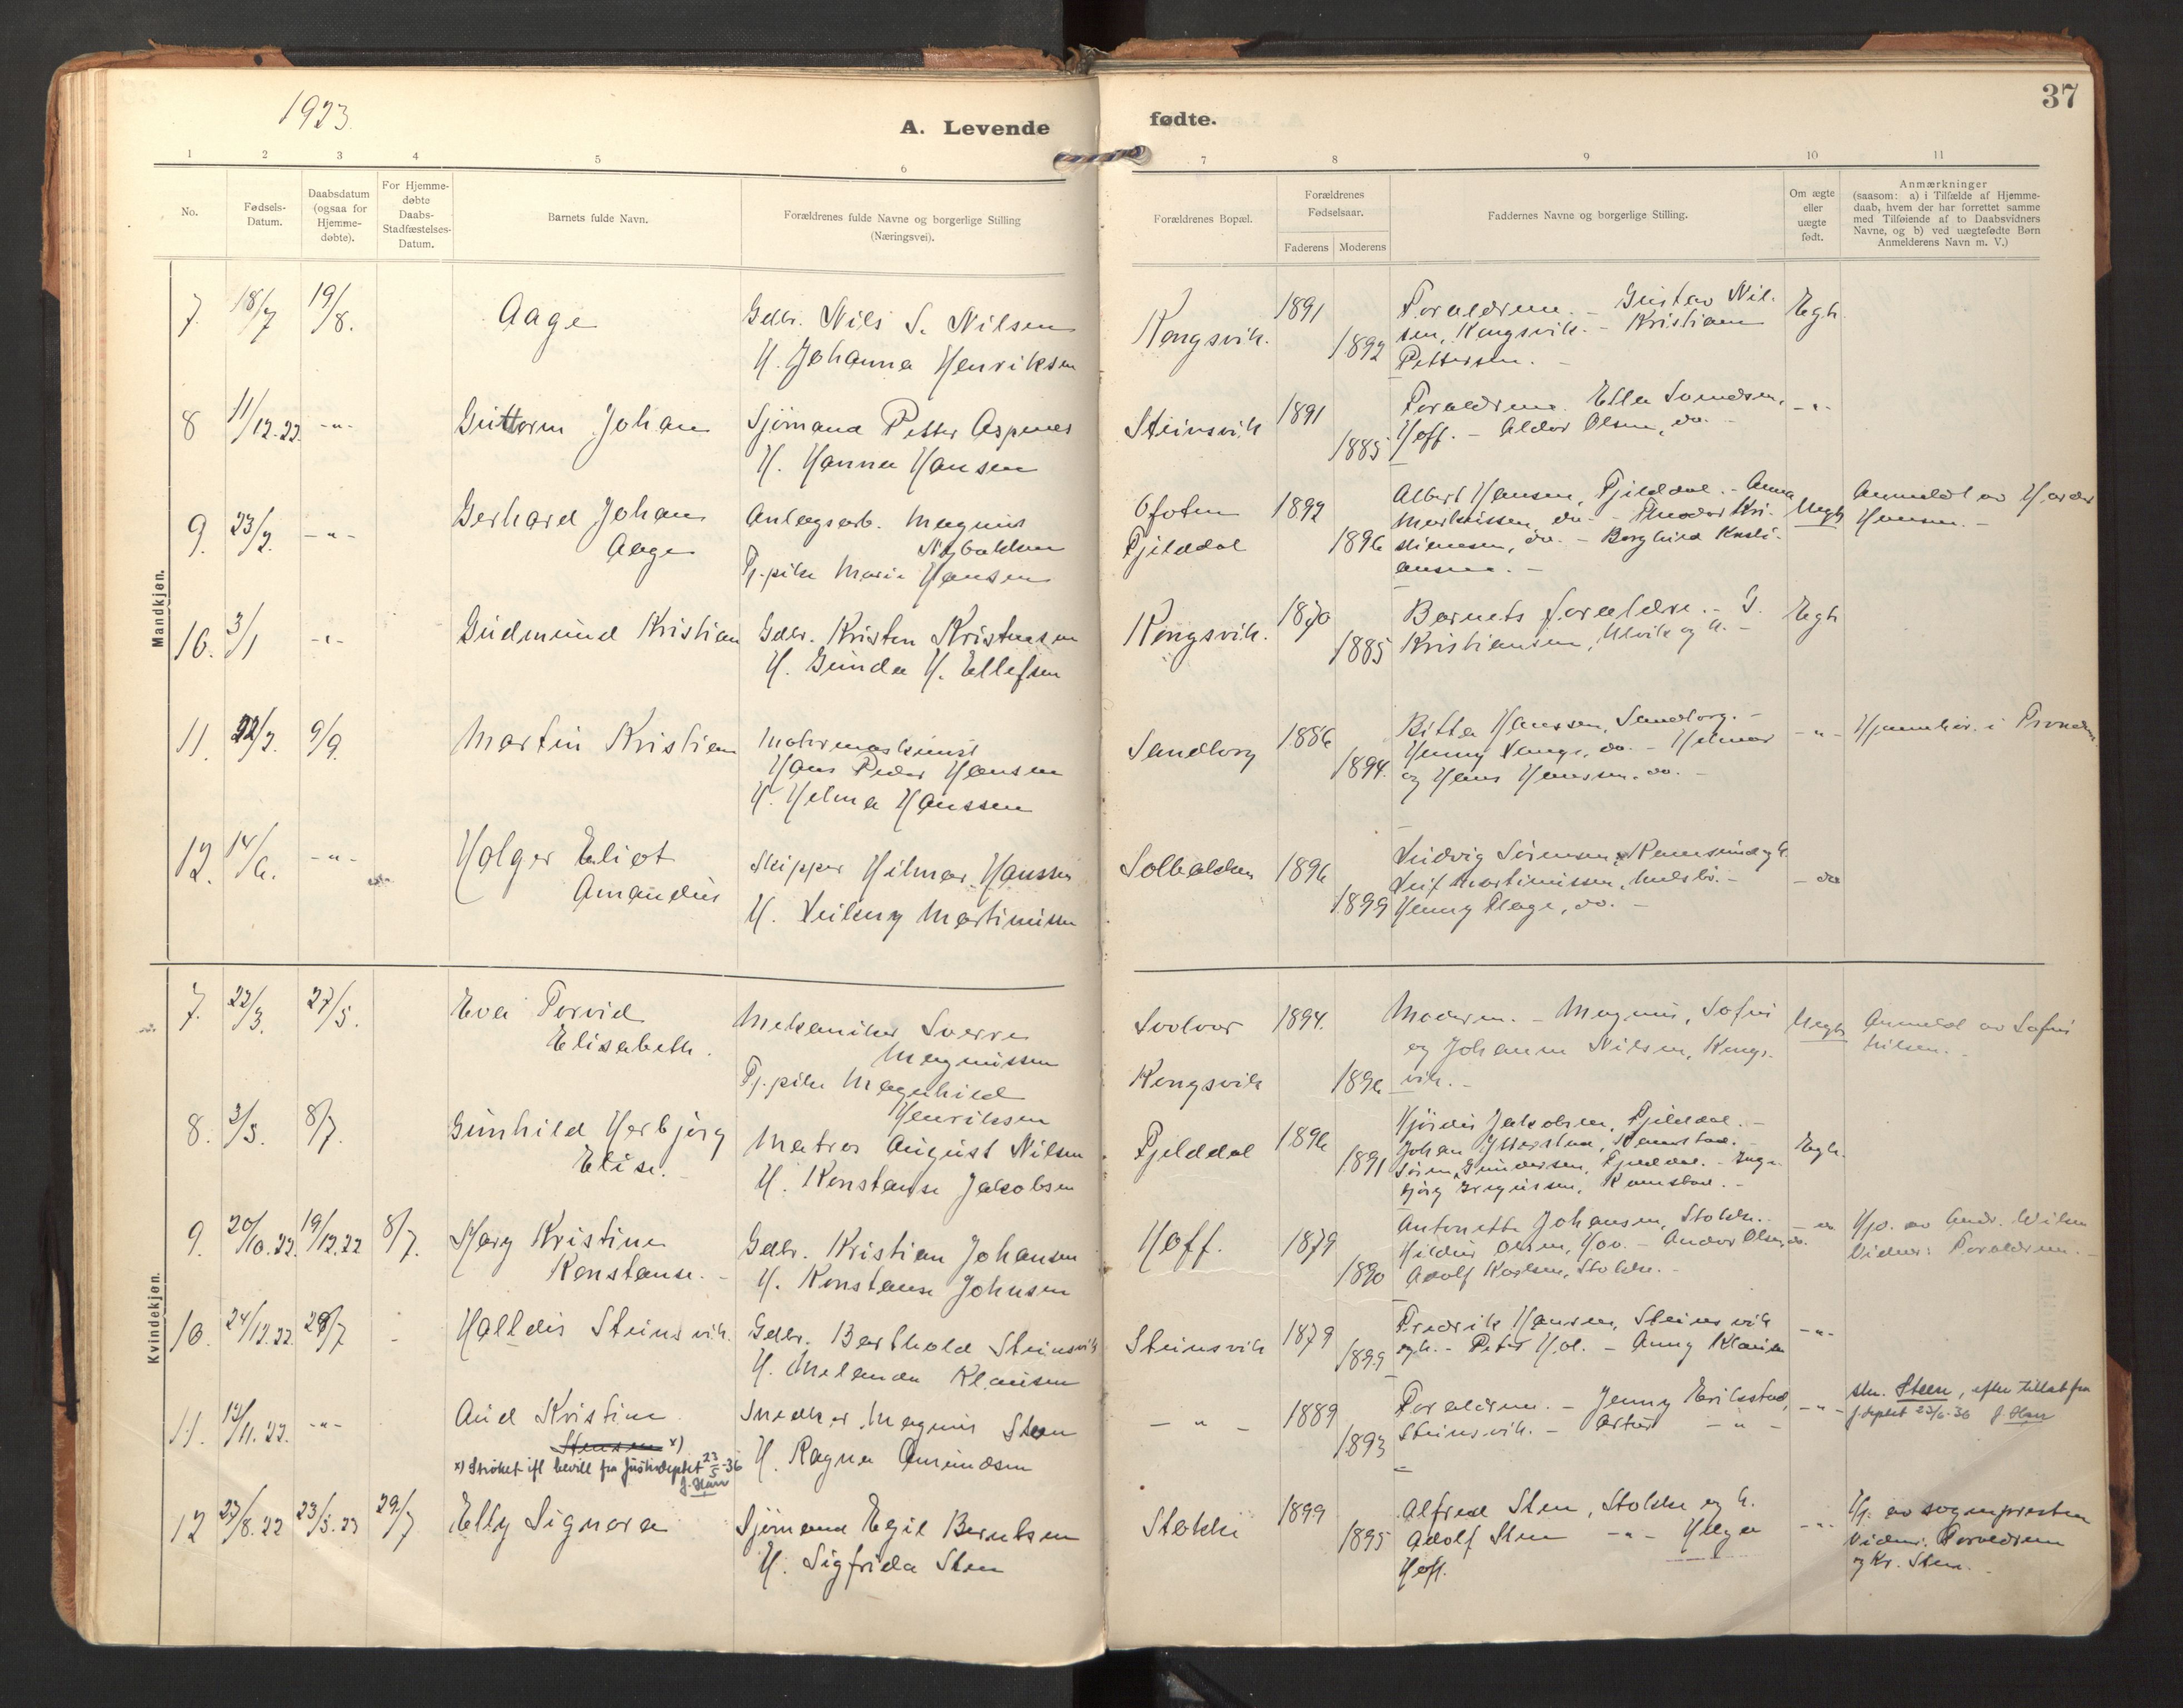 1923.
A. Levende
fødte.
37
1 2 3 4 5 6 7 8 9 10 11
No.
Fødsels-
Datum.
Daabsdatum
(ogsaa for
Hjemme-
døbte).
For Hjemme-
døbte
Daabs-
Stadfæstelses-
Datum.
Barnets fulde Navn.
Forældrenes fulde Navne og borgerlige Stilling
(Næringsvei).
Forældrenes Bopæl.
Forældrenes
Fødselsaar.
Faderens Moderens
Faddernes Navne og borgerlige Stilling.
Om ægte
eller
uægte
født.
Anmærkninger
(saasom: a) i Tilfælde af Hjemme-
daab, hvem der har forrettet samme
med Tilføiende af to Daabsvidners
Navne, og b) ved uægtefødte Børn
Anmelderens Navn m. V.)
Mandkjøn.
7. 18/7 19/8. Aage
Gdbr. Nils S. Nilsen
H. Johanna Henriksen
Kongsvik. 1891 1892
Forældrene. - Gustav Nil-
sen, Kongsvik. - Kristian
Pettersen. -
Egte
8 11/12.22. -"-
Guttorm Johan
Sjømand Petter Aspenes
H. Hanna Hansen
Steinsvik 1891 1885
Forældrene. Ella Svendsen,
Hoff. - Aldor Olsen, do. -
-"-
9. 23/2. -"-
Gerhard Johan
Aage
Anlegsarb. Magnus
Nybakken
Tj.pike Marie Hansen
Ofoten
Fjelddal
1892 1896
Albert Hansen, Fjelddal. - Anna
Martinissen, do. - Theodor Kri-
stiansen, do. - Borghild Kristi-
ansen. -
Uegte
Anmeldt av
Hansen. -
10. 3/1 -"-
Gudmund Kristian
Gdbr. Kristen Kristensen
H. Gunda H. Ellefsen
Kongsvik. 1870 1885
Barnets forældre. - G.
Kristiansen, Ulvik og h. -
Egte
11. 22/2. 9/9.
Martin Kristian
Motormaskinist
Hans Peder Hansen
H. Helma Hanssen
Sandtorg 1886 1894.
Hanssen, Sandtorg. -
Henny Lange, do. - Hilmar
og Hans Hanssen, do. -
-"-
12. 14/6. -"-
Holger Eliot
Amandus
Skipper Hilmar Hanssen
H. Martinissen
Solbakken 1896 1899
Ludvig Sørensen, Ramsund og h.
Leif Martinissen, -
Henny do. -
- do
Kvindekjøn.
7. 22/3. 27/5.
Eva Torvid
Elisabeth.
Mekaniker Sverre
Magnussen
Tj.pike Magnhild
Henriksen
Svolvær
Kongsvik
1894. 1896
Moderen. - Magnus, Sofus
og Johanna Nilsen, Kongs-
vik. -
Uegte
Anmeldt av Sofus
Nilsen. -
8. 3/5. 8/7.
Gunhild Herbjørg
Elise. -
Matros August Nilsen
H. Konstanse Jakobsen
Fjelddal 1896 1891
Hjørdis Jakobsen, Fjelddal. -
Johan Ytterstad, -
Søren Gundersen, Fjelddal. - Inge-
bjørg -
Egte.
9. 20/10.22. 19/12.22 8/7.
Mary Kristine
Konstanse. -
Gdbr. Kristian Johansen
H. Konstanse Johnsen
Hoff. 1879 1890
Antonette Johansen, Stokke. -
Hildur Olsen, Hov. - Andor Olsen, do.
Adolf Karlsen, Stokke. -
- do
Hjd. av Andr. Nilsen
Vidner: Forældrene. -
10. 24/12.22. 29/7 -
Halldis Steinsvik.
Gdbr. Berthold Steinsvik
H. Klausen
Steinsvik 1879 1899
Fredrik Hansen, Steinsvik
og h. - Peter Hol. - Anny Klausen
-"-
11. 12/11.22. -"-
Aud Kristine
Stensen x)
x) Strøket ifl bevill fra Justisdeptet 23/5-36
J. Harr
Snedker Magnus Steen
H. Ragna Amundsen
-"- 1889 1893
Forældrene. - Jenny Eriksstad,
Steinsvik. - Artur -"-
-"-
Steen, efter tillat fra
J.deptet 23/6-36 J. Harr
12 23/8.22 23/3.23 29/7
Elly Signora
Sjømand Egil Berntsen
H. Sigfrida Sten
Stokke 1899 1895
Alfred Sten, Stokke og h.
Adolf Sten -"- Helga
Hoff.
-"-
Hj. av sogneprесten
Vidner: Forældrene
og Kr. Sten. -